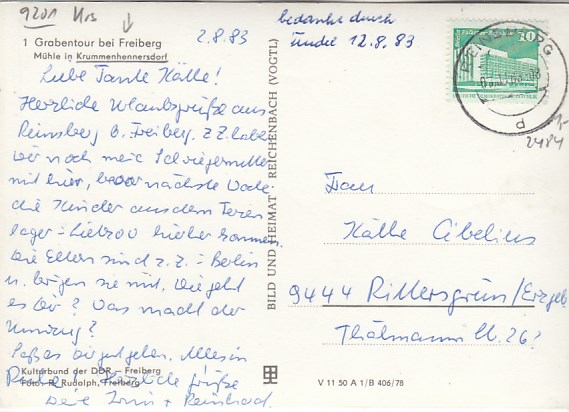 9201 Urs
1 Grabentour bei Freiberg
Mühle in Krummenhennersdorf
2.8.83
bedankt durch
12.8.83
10
Liebe Tante Käthe!
Herzliche Urlaubsgrüße aus
Reinsberg b. Freiberg. z.Z. haben
wir noch meine Schwiegermutter
mit hier, bevor nächste Woche
die Kinder aus dem Ferien
lager hierher kommen.
Die Eltern sind z.Z. Berlin
u. bringen sie mit. Wie geht
es Dir? Was macht der
Umzug?
Laß es dir gut gehen. Alles in
Ruhe! Herzliche Grüße
Reinhard
Kulturbund der DDR – Freiberg
Foto: R. Rudolph, Freiberg
BILD UND HEIMAT REICHENBACH (VOGTL)
V 11 50 A 1/B 406/78
1-
2484
Frau
Käthe Cibelius
9444 Rittersgrün/Erzgeb
Thälmann 26?